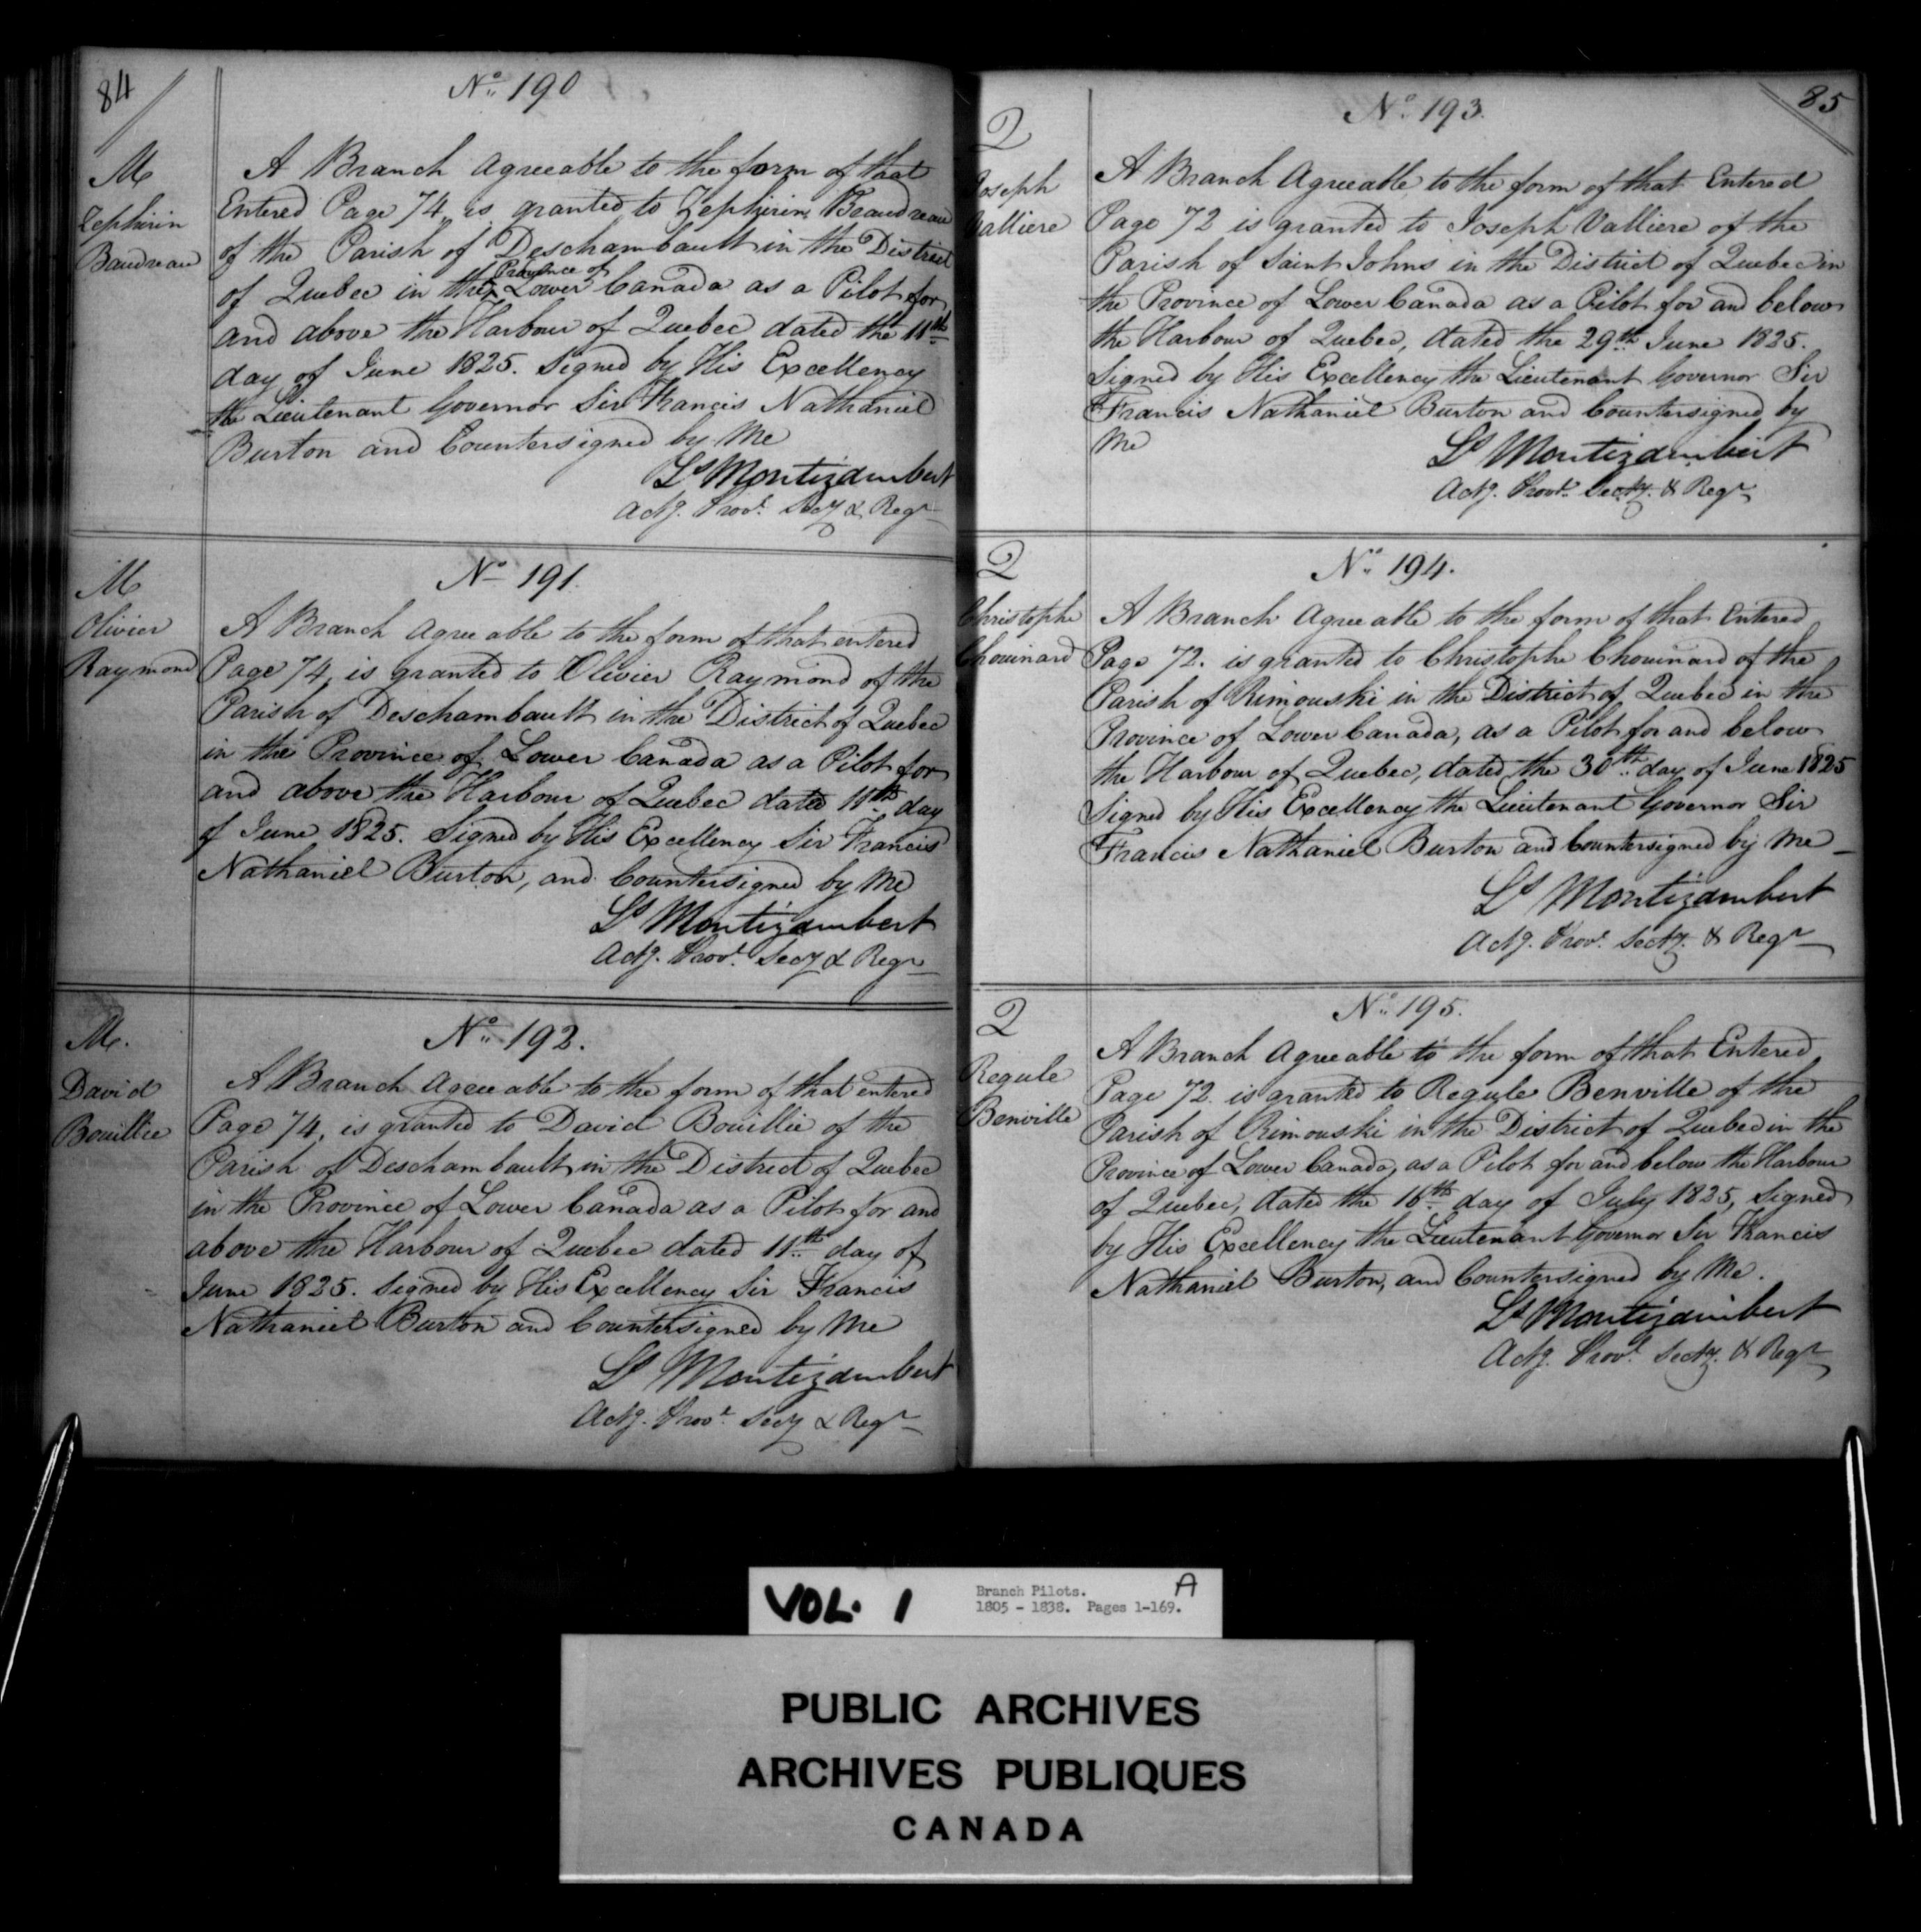 84
No 190
M
Zephirin
Baudreau
A Branch Agreeable to the form of that
Entered Page 74, is granted to Zephirin Beaudreau
of the Parish of Deschambault in the District
Province of
of Quebec in the Lower Canada as a Pilot for
and above the Harbour of Quebec dated the 11th
day of June 1825. Signed by His Excellency
the Lieutenant Governor Sir Francis Nathaniel
Burton and Countersigned by Me
Ls Montizambert
Actg. Provl. Secy & Regr
M
Olivier
Raymond
No 191.
A Branch Agreeable to the form of that entered
Page 74, is granted to Olivier Raymond of the
Parish of Deschambault in the District of Quebec
in the Province of Lower Canada as a Pilot for
and above the Harbour of Quebec dated 11th day
of June 1825. Signed by His Excellency Sir Francis
Nathaniel Burton, and Countersigned by Me
Ls Montizambert
Actg. Provl. Secy & Regr
M.
David
Bouillie
No 192.
A Branch Agreeable to the form of that entered
Page 74, is granted to David Bouillie of the
Parish of Deschambault in the District of Quebec
in the Province of Lower Canada as a Pilot for and
above the Harbour of Quebec dated 11th day of
June 1825. Signed by His Excellency Sir Francis
Nathaniel Burton and Countersigned by Me
Ls Montizambert
Actg. Provl. Secy & Regr
85
No 193.
Q
Joseph
Valliere
A Branch Agreeable to the form of that Entered
Page 72 is granted to Joseph Valliere of the
Parish of Saint Johns in the District of Quebec in
the Province of Lower Canada as a Pilot for and below
the Harbour of Quebec, dated the 29th June 1825.
Signed by His Excellency the Lieutenant Governor Sir
Francis Nathaniel Burton and Countersigned by
Me
Ls Montizambert
Actg. Provl. Secty. & Regr
Q
Christophe
Chouinard
No 194.
A Branch Agreeable to the form of that Entered
Page 72. is granted to Christophe Chouinard of the
Parish of Rimouski in the District of Quebec in the
Province of Lower Canada, as a Pilot for and below
the Harbour of Quebec, dated the 30th day of June 1825
Signed by His Excellency the Lieutenant Governor Sir
Francis Nathaniel Burton and Countersigned by Me
Ls Montizambert
Actg. Provl. Secty. & Regr
Q
Regule
Benville
No 195.
A Branch Agreeable to the form of that Entered
Page 72 is granted to Regule Benville of the
Parish of Rimouski in the District of Quebec in the
Province of Lower Canada, as a Pilot for and below the Harbour
of Quebec, dated the 16th day of July 1825, Signed
by His Excellency the Lieutenant Governor Sir Francis
Nathaniel Burton, and Countersigned by Me.
Ls Montizambert
Actg. Provl. Secty. & Regr
VOL. 1
Branch Pilots. A
1805 - 1838. Pages 1-169.
PUBLIC ARCHIVES
ARCHIVES PUBLIQUES
CANADA